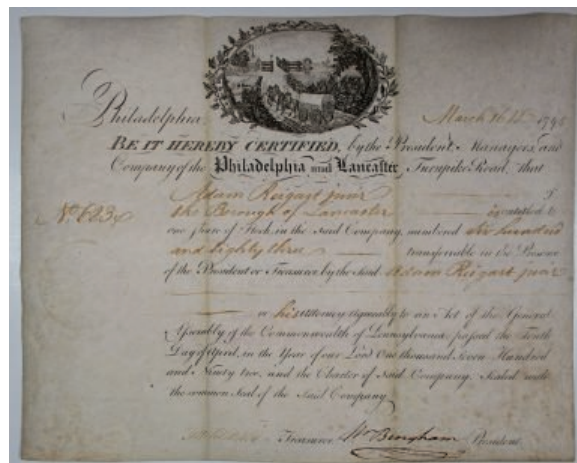 Philadelphia March 16th 1795
BE IT HEREBY CERTIFIED, by the President, Managers, and
Company of the Philadelphia and Lancaster Turnpike Road, that
Adam Reigart junr of
No. 683 the Borough of Lancaster is entitled to
one share of Stock in the said Company, numbered six hundred
and Eighty three transferrable in the Presence
of the President or Treasurer by the said Adam Reigart junr
or his attorney agreeably to an Act of the General
Assembly of the Commonwealth of Pennsylvania passed the Ninth
Day of April, in the Year of our Lord One thousand Seven Hundred
and Ninety two, and the Charter of said Company. Sealed with
the common Seal of the said Company
Treasurer Wm Bingham President